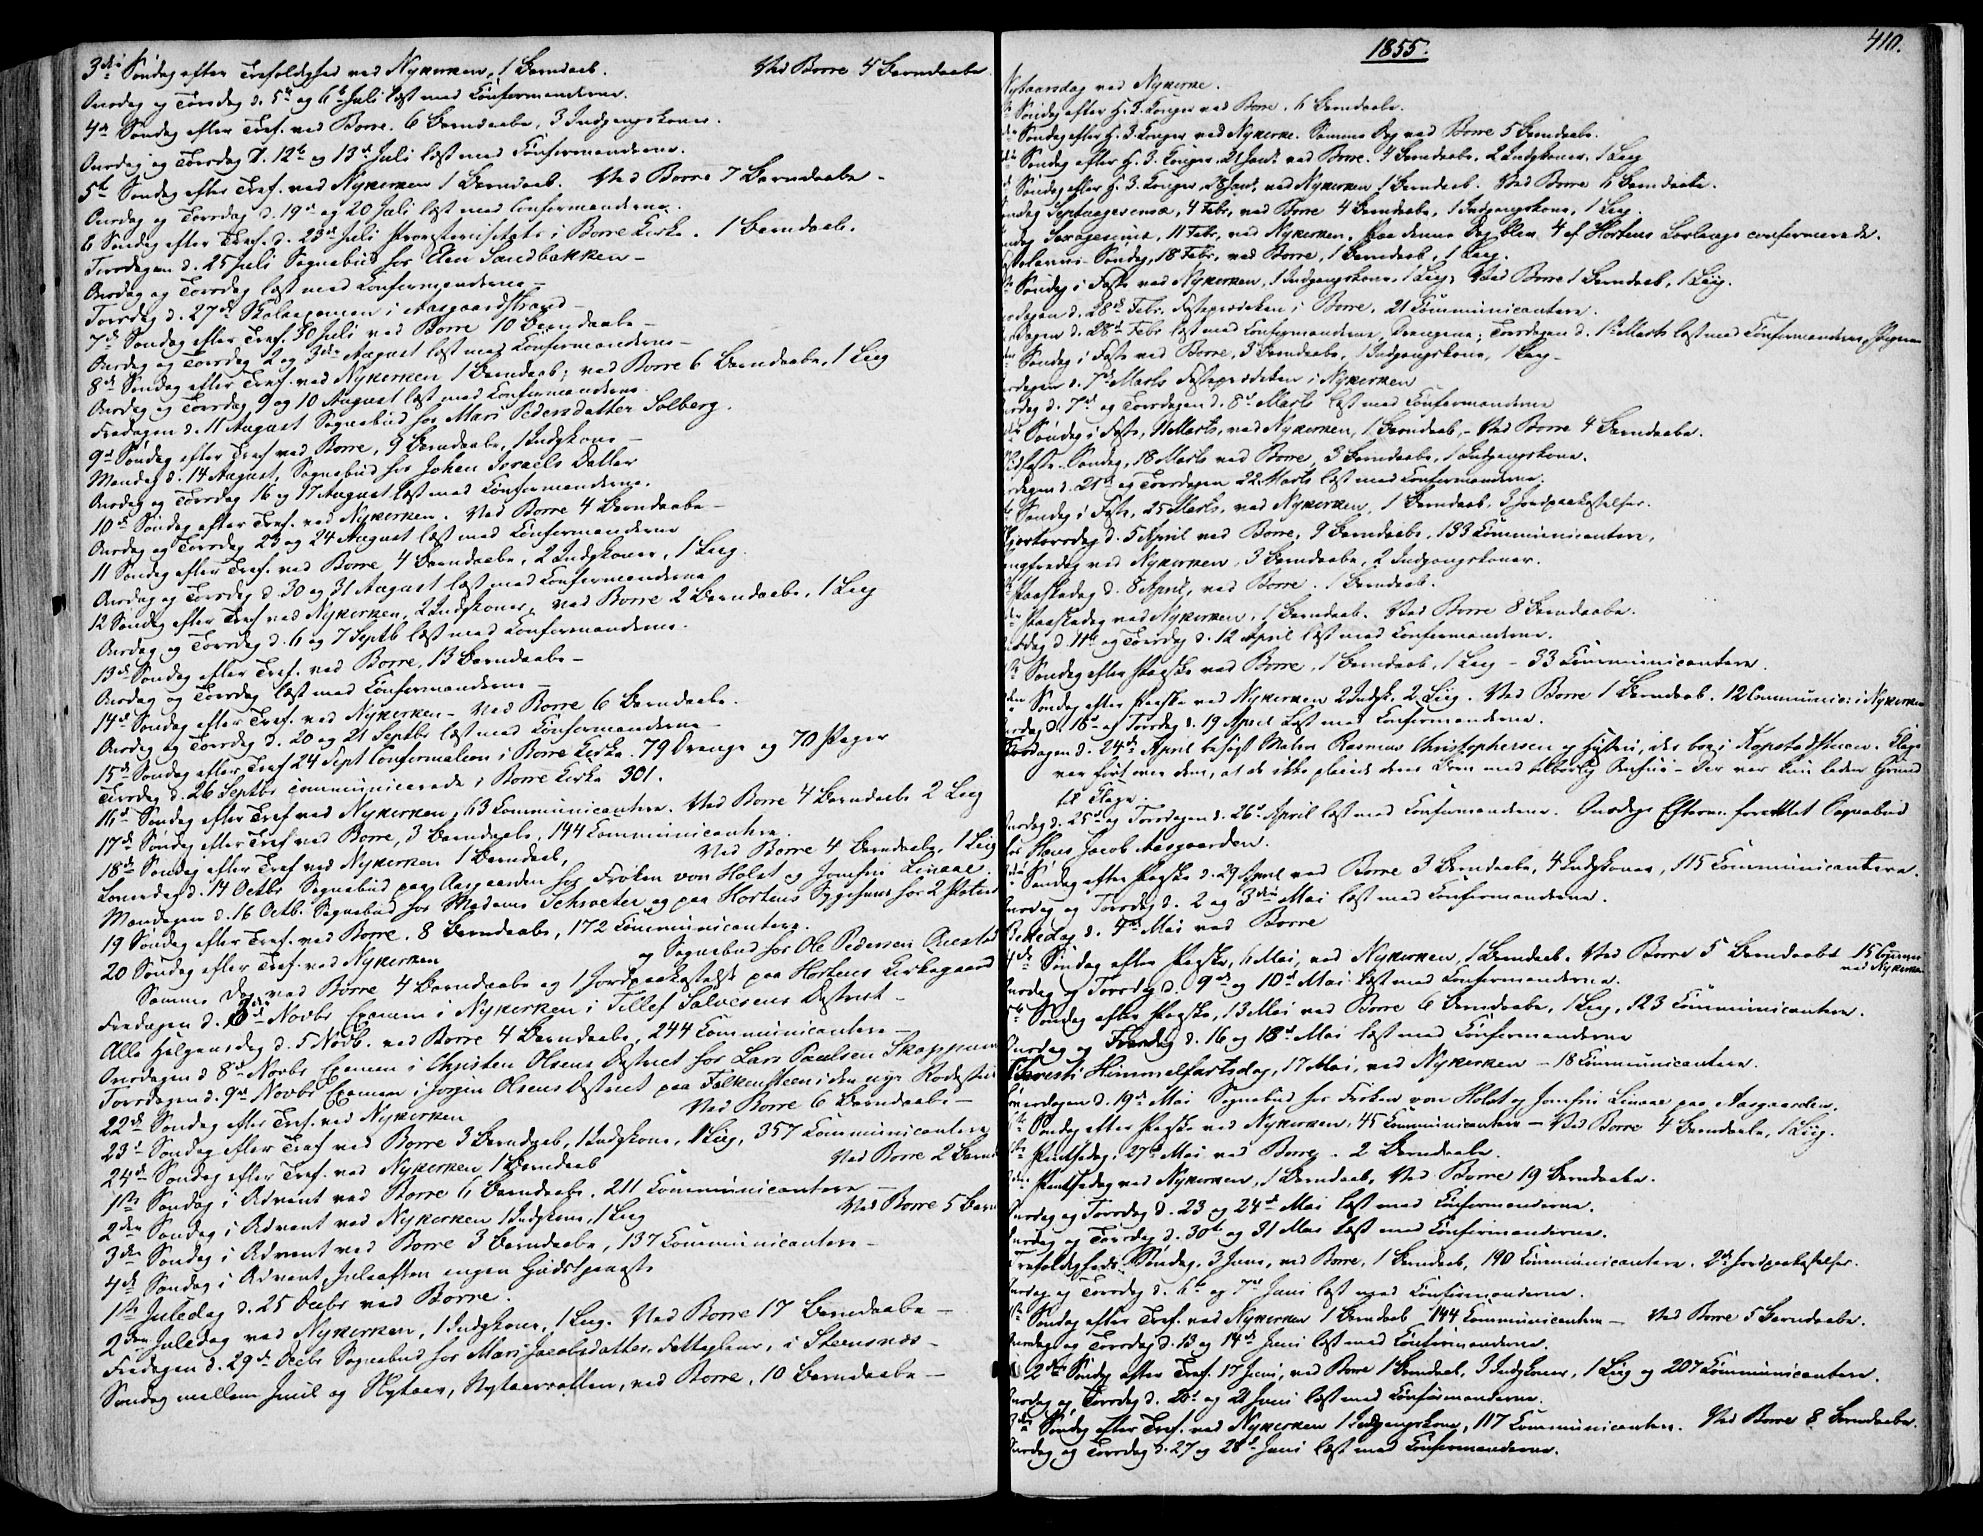 3die Søndag efter Trefoldighed ved Nykirken, 1 Barnedaab. Ved Borre 4 Barnedaabe
Onsdag og Torsdag d. 5te og 6te Juli læst med Confirmanderne.
4de Søndag efter Tref. ved Borre. 6 Barnedaabe, 3 Indgangskoner.
Onsdag og Torsdag d. 12te og 13de Juli læst med Confirmanderne.
5te Søndag efter Tref. ved Nykirken 1 Barnedaab. Ved Borre 7 Barnedaabe -
Onsdag og Torsdag d. 19de og 20 Juli læst med Confirmanderne.
6 Søndag efter Tref. d. 23de Juli Provstevisitats i Borre Kirke. 1 Barnedaab.
Tirsdagen d. 25 Juli Sognebud for Elen Sandbakken -
Onsdag og Torsdag læst med Confirmanderne -
Torsdag d. 27de Skoleexamen i Aasgaardstrand -
7de Søndag efter Tref. 30 Juli ved Borre 10 Barnedaabe -
Onsdag og Torsdag 2 og 3die August læst med Confirmanderne -
8de Søndag efter Tref. ved Nykirken 1 Barnedaab; ved Borre 6 Barnedaabe, 1 Liig
Onsdag og Torsdag 9 og 10 August læst med Confirmanderne.
Fredagen d. 11 August Sognebud for Mari Pedersdatter Solberg.
9de Søndag efter Tref. ved Borre, 9 Barnedaabe, 1 Indgkone -
Mandag d. 14 August, Sognebud for Johan Israels Datter
Onsdag og Torsdag 16 og 17 August læst med Confirmanderne.
10de Søndag efter Tref. ved Nykirken. Ved Borre 4 Barnedaabe -
Onsdag og Torsdag 23 og 24 August læst med Confirmanderne
11 Søndag efter Tref. ved Borre, 4 Barnedaabe, 2 Indgkoner, 1 Liig.
Onsdag og Torsdag d. 30 og 31 August læst med Confirmanderne
12 Søndag efter Tref. ved Nykirken, 2 Indgkoner, ved Borre 2 Barnedaabe, 1 Liig
Onsdag og Torsdag d. 6 og 7 Septb læst med Confirmanderne.
13de Søndag efter Tref. ved Borre, 13 Barnedaabe -
Onsdag og Torsdag læst med Confirmanderne -
14de Søndag efter Tref. ved Nykirken - Ved Borre 6 Barnedaabe.
Onsdag og Torsdag d. 20 og 21 Septbr læst med Confirmanderne -
15de Søndag efter Tref. 24 Sept Confirmation i Borre Kirke. 79 Drenge og 70 Piger
Tirsdag d. 26 Septbr communicerede i Borre Kirke 301.
16de Søndag efter Tref. ved Nykirken, 63 Communicantere. Ved Borre 4 Barnedaabe 2 Liig
17de Søndag efter Tref. ved Borre, 3 Barnedaabe, 144 Communicantere.
18de Søndag efter Tref. ved Nykirken 1 Barnedaab, Ved Borre 4 Barnedaabe, 1 Liig
Løverdag d. 14 Octbr Sognebud paa Aasgaarden for Frøken von Holst og Jomfru Linaae.
Mandagen d. 16 Octb. Sognebud for Madame Schrøeter og paa Hortens Sygehuus for 2 Patient
19 Søndag efter Tref. ved Borre. 8 Barnedaabe, 172 Communicantere.
20 Søndag efter Tref. ved Nykirken og Sognebud for Ole Pedersen
Samme Dag ved Borre 4 Barnedaabe og 1 Jordpaakastelse paa Hortens Kirkegaard
Fredagen d. 3de Novbr Examen i Nykirken i Tellef Salvesens District -
Alle Helgensdag d. 5 Novb. ved Borre 4 Barnedaabe, 244 Communicantere -
Onsdagen d 8de Novbr Examen i Christen Olsens District for Lars Paulsen Skoppum
Torsdagen d. 9de Novbr Examen i Jørgen Olsens District paa Falkensteen i den nye Rodestue
22de Søndag efter Tref. ved Nykirken Ved Borre 6 Barnedaabe -
23de Søndag efter Tref. ved Borre 3 Barnedaab, 1 Indgkone, 1 Liig, 357 Communicantere
24de Søndag efter Tref. ved Nykirken 1 Barnedaab Ved Borre 2 Barned
1ste Søndag i Advent ved Borre 6 Barnedaabe. 211 Communicantere -
2den Søndag i Advent ved Nykirken 1 Indgkone, 1 Liig Ved Borre 5 Barn
3die Søndag i Advent ved Borre 3 Barnedaabe, 137 Communicantere -
4de Søndag i Advent, Juleaften ingen Gudstjeneste
1ste Juledag d. 25 Decbr ved Borre.
2den Juledag ved Nykirken, 1 Indgkone, 1 Liig. Ved Borre 17 Barnedaabe -
Fredagen d. 29de Decbr Sognebud for Mari Jacobsdatter, i Steensnes -
Søndag mellem Juul og Nytaar, Nytaarsaften, ved Borre, 10 Barnedaabe -
1855.
410.
Nytaarsdag ved Nykirke.
Søndag efter H. 3. Konger ved Borre. 6 Barnedaabe.
Søndag efter H. 3. Konger ved Nykirke. Samme Dag ved Borre 5 Barnedaabe.
Søndag efter H. 3. Konger, 21 Jan. ved Borre. 4 Barnedaabe, 2 Indgkoner, 1 Liig
Søndag efter H. 3. Konger, 28 Jan. ved Nykirken 1 Barnedaab. Ved Borre 6 Barnedaabe.
Søndag Septuagesima, 4 Febr, ved Borre 4 Barnedaabe, 1 Indgangskone, 1 Liig.
Søndag Sexagesima, 11 Febr, ved Nykirken, Paa denne Dag blev 4 af Hortens Lærlinge confirmerede.
Fastelavns-Søndag, 18 Febr, ved Borre, 1 Barnedaab, 1 Liig.
Søndag i Faste ved Nykirken, 1 Indgangskone, 1 Liig, Ved Borre 1 Barnedaab, 1 Liig.
Onsdagen d. 28de Febr. Fasteprædiken i Borre, 21 Communicantere.
Onsdagen d. 28de Febr læst med Confirmanderne, Drengene; Torsdagen d. 1ste Marts læst med Confirmanderne, Pigerne
Søndag i Faste ved Borre, 3 Barnedaabe, 1 Indgangskone, 1 Liig -
Onsdagen d. 7de Marts Fasteprædiken i Nykirken
Onsdag d. 7de og Torsdagen d. 8de Marts læst med Confirmanderne
Søndag i Faste, 11 Marts, ved Nykirken, 1 Barnedaab, - Ved Borre 4 Barnedaabe.
Midfaste-Søndag, 18 Marts ved Borre, 3 Barnedaabe, 1 Indgangskone.
Onsdagen d. 21de og Torsdagen 22 Marts læst med Confirmanderne.
Søndag i Faste, 25 Marts, ved Nykirken, 1 Barnedaab, 3 Jordpaakastelser.
Skjertorsdag d. 5 April ved Borre, 9 Barnedaabe, 133 Communicantere,
Langfredag ved Nykirken, 3 Barnedaabe, 2 Indgangskoner.
Paaskedag d. 8 April, ved Borre. 1 Barnedaab.
Paaskedag ved Nykirken, 1 Barnedaab. Ved Borre 8 Barnedaabe.
Onsdag d. 11te og Torsdag d. 12 April læst med Confirmanderne.
Søndag efter Paaske ved Borre, 1 Barnedaab, 1 Liig - 33 Communicantere.
Søndag efter Paaske ved Nykirken 2 Indgk. 2 Liig. Ved Borre 1 Barnedaab. 12 Communic: i Nykirken
Onsdag d. 18de og Torsdag d. 19 April læst med Confirmanderne.
Tirsdagen d. 24de April besøgt Maler Rasmus Christophersen og Hustru, der boe i Kopstadstuen. Klage
var ført over dem, at de ikke pleiede deres Barn med tilbørlig Omhue - Der var kun liden Grund
til Klage.
Onsdag d. 25de og Torsdagen d. 26de April læst med Confirmanderne. Onsdags Efterm. forrettet Sognebud
for Hans Jacob Aasgaarden.
Søndag efter Paaske d. 29 April ved Borre 3 Barnedaabe, 4 Indgkoner, 115 Communicantere.
Onsdag og Torsdag d. 2 og 3die Mai læst med Confirmanderne.
Bededag d. 4de Mai ved Borre
Søndag efter Paaske, 6 Mai, ved Nykirken, 1 Barnedaab. Ved Borre 5 Barnedaabe 15 Commun
ved Nykirken
Onsdag og Torsdag d. 9de og 10de Mai læst med Confirmanderne.
Søndag efter Paaske, 13 Mai ved Borre 6 Barnedaabe, 1 Liig, 123 Communicantere.
Onsdag og Fredag d. 16 og 18de Mai læst med Confirmanderne
Christi Himmelfartsdag, 17 Mai, ved Nykirken - 18 Communicantere.
Løverdagen d. 19de Mai Sognebud for Frøken von Holst og Jomfru Linaae paa Aasgaarden.
Søndag efter Paaske ved Nykirken, 45 Communicantere - Ved Borre 4 Barnedaabe, 1 Liig.
Pintsedag, 27de Mai ved Borre. 2 Barnedaabe.
Pintsedag ved Nykirken, 1 Barnedaab, Ved Borre 19 Barnedaabe.
Onsdag og Torsdag d. 23 og 24de Mai læst med Confirmanderne.
Onsdag og Torsdag d. 30te og 31 Mai læst med Confirmanderne.
Trefoldigheds Søndag, 3 Juni, ved Borre, 1 Barnedaab, 190 Communicantere. 2de Jordpaakastelser.
Onsdag og Torsdag d. 6te og 7de Juni læst med Confirmanderne.
Søndag efter Tref. ved Nykirken 1 Barnedaab 144 Communicantere - Ved Borre 5 Barnedaabe.
Onsdag og Torsdag d. 13 og 14de Juni læst med Confirmanderne.
2den Søndag efter Tref. 17 Juni, ved Borre 1 Barnedaab, 3 Indgkoner, 1 Liig og 207 Communicantere.
Onsdag og Torsdag d. 20de og 21 Juni læst med Confirmanderne.
3die Søndag efter Tref. ved Nykirken 1 Indgangskone, 117 Communicantere. Ved Borre 8 Barnedaabe.
Onsdag og Torsdag d. 27 og 28de Juni læst med Confirmanderne.